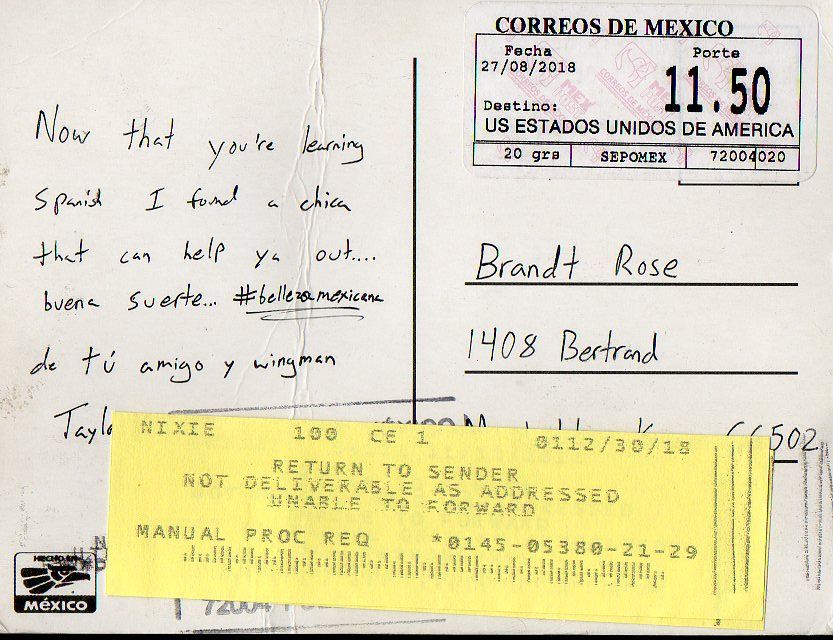 CORREOS DE MEXICO
Fecha Porte
27/08/2018 11.50
Destino:
US ESTADOS UNIDOS DE AMERICA
20 grs SEPOMEX 72004020
Now that you're learning
Spanish I found a chica
that can help ya out....
buena suerte... #bellezamexicana
de tú amigo y wingman
Brandt Rose
1408 Bertrand
66502
NIXIE 100 CE 1 0112/30/18
RETURN TO SENDER
NOT DELIVERABLE AS ADDRESSED
UNABLE TO FORWARD
MANUAL PROC REQ *0145-05380-21-29
HECHO EN
MéXICO
72004